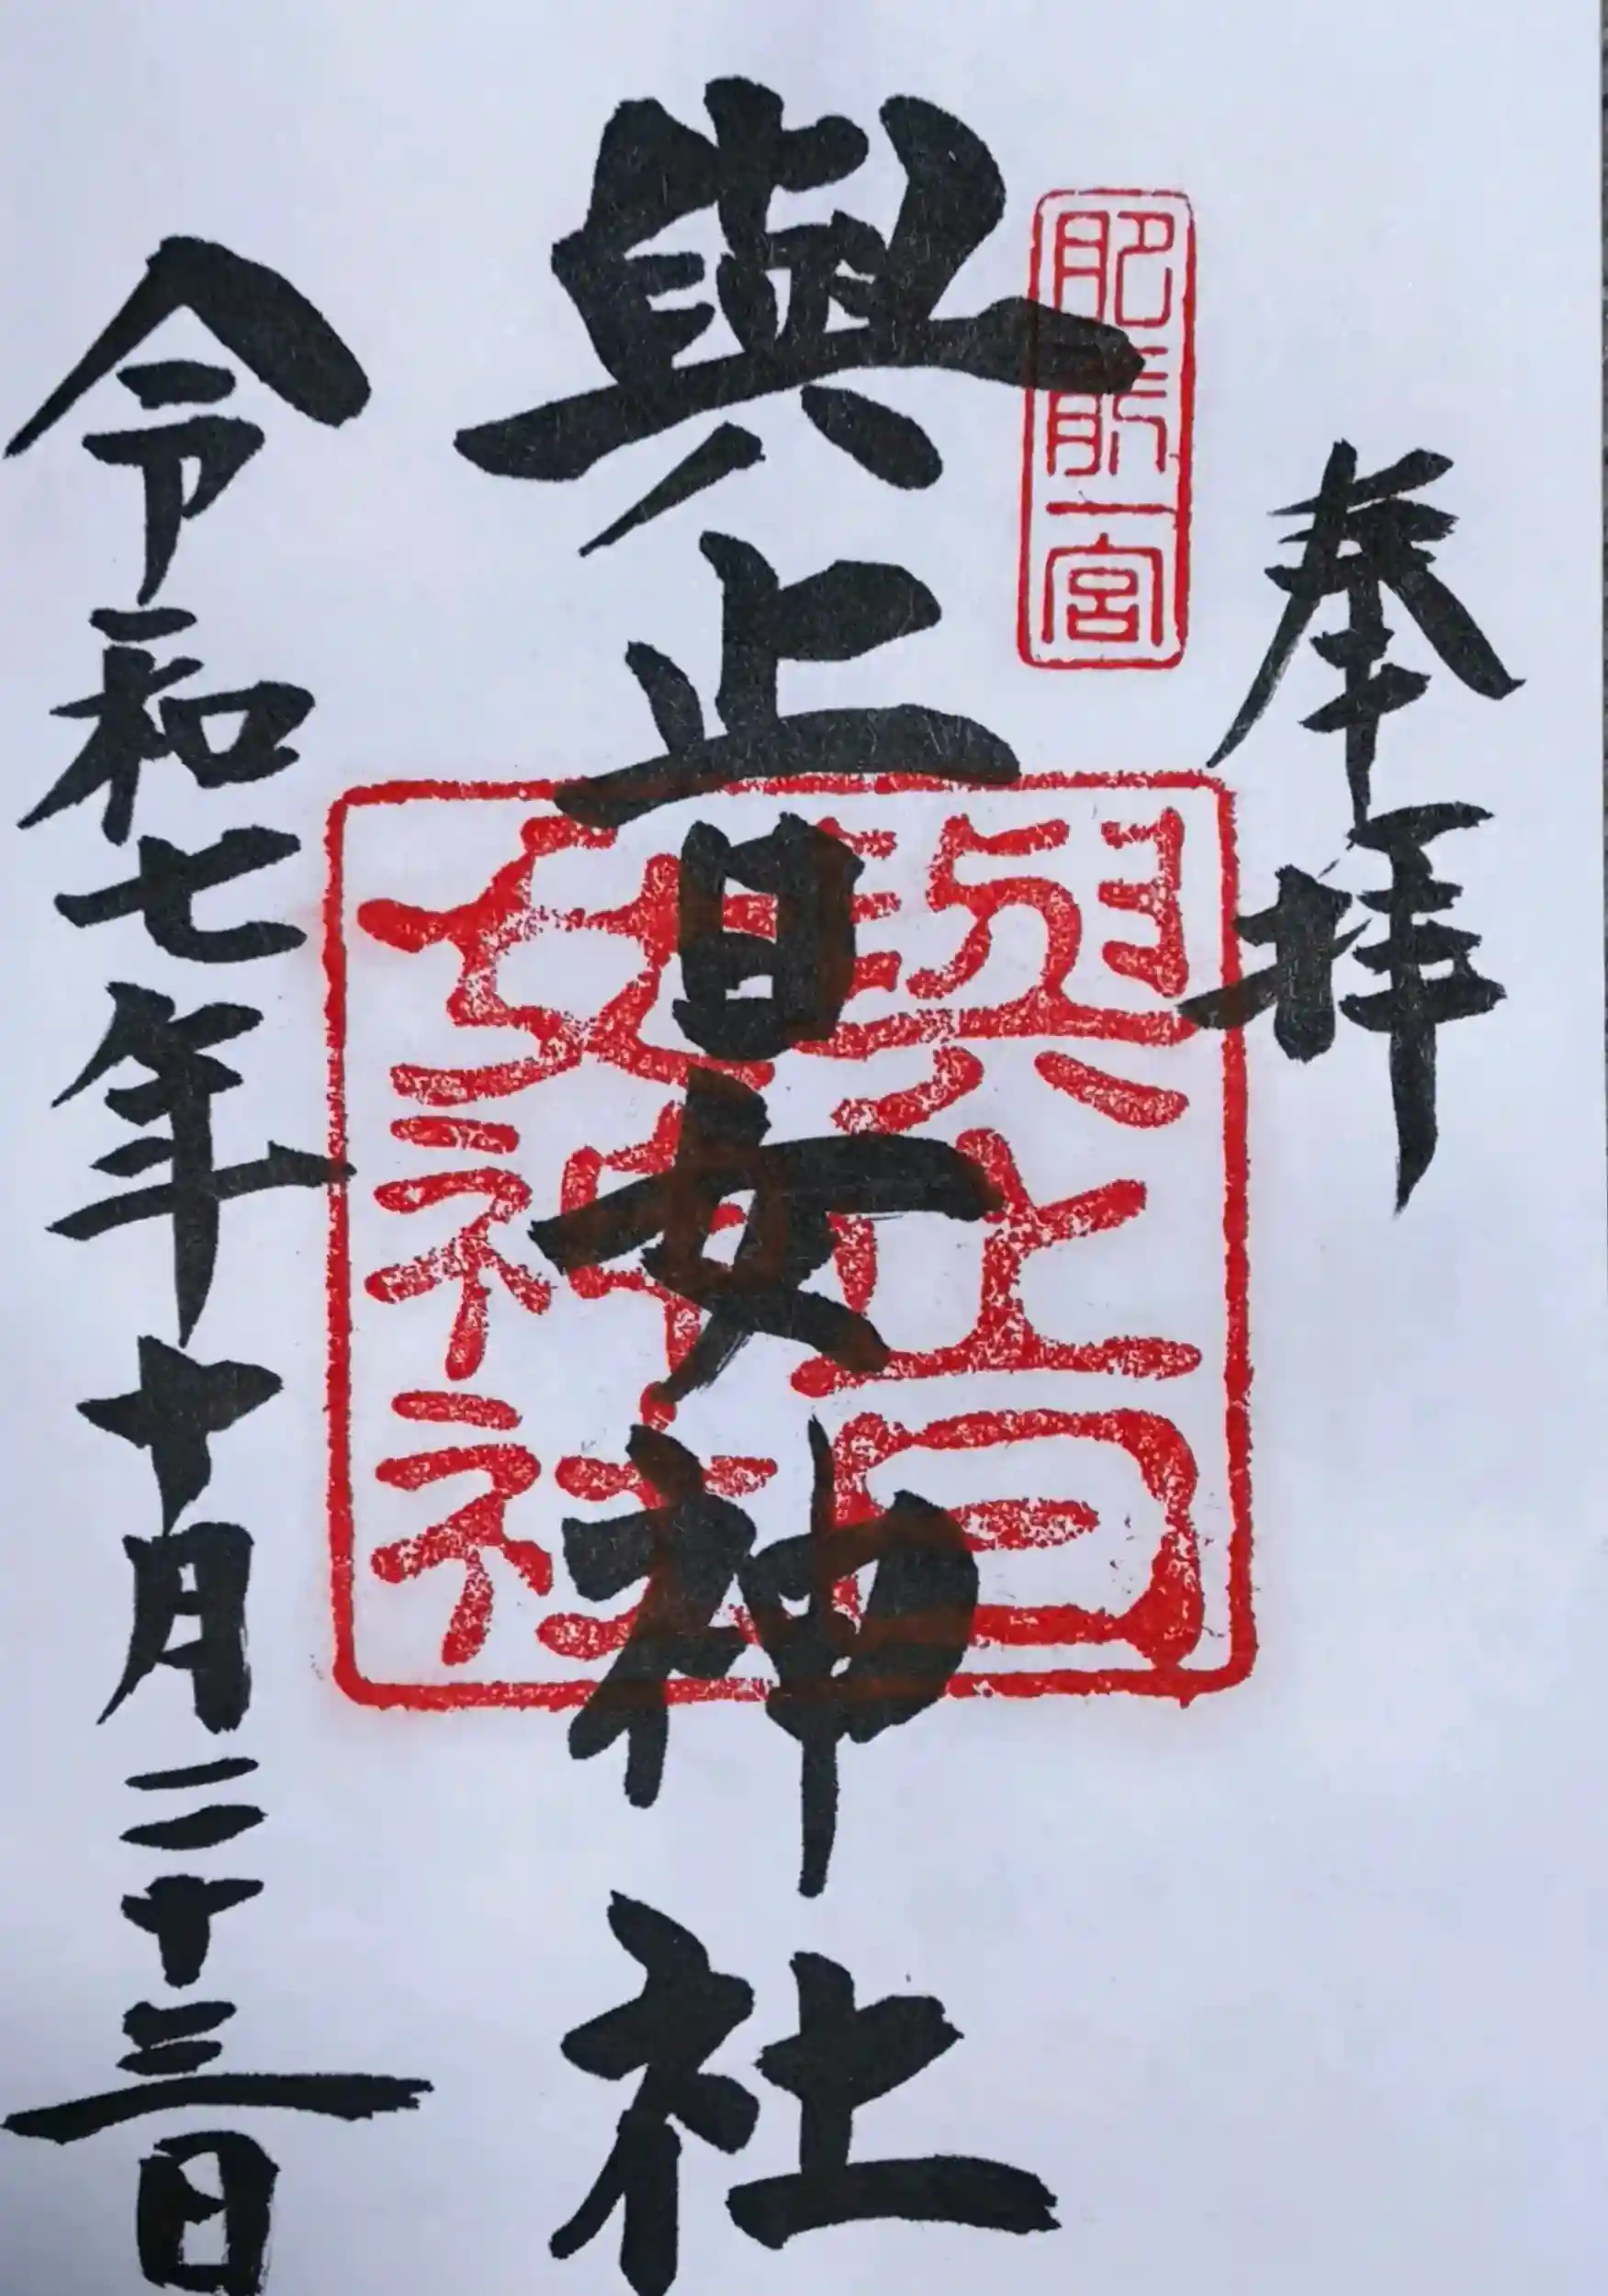 奉拝
肥前一宮
與止日女神社
與止日女神社
令和七年十月二十三日